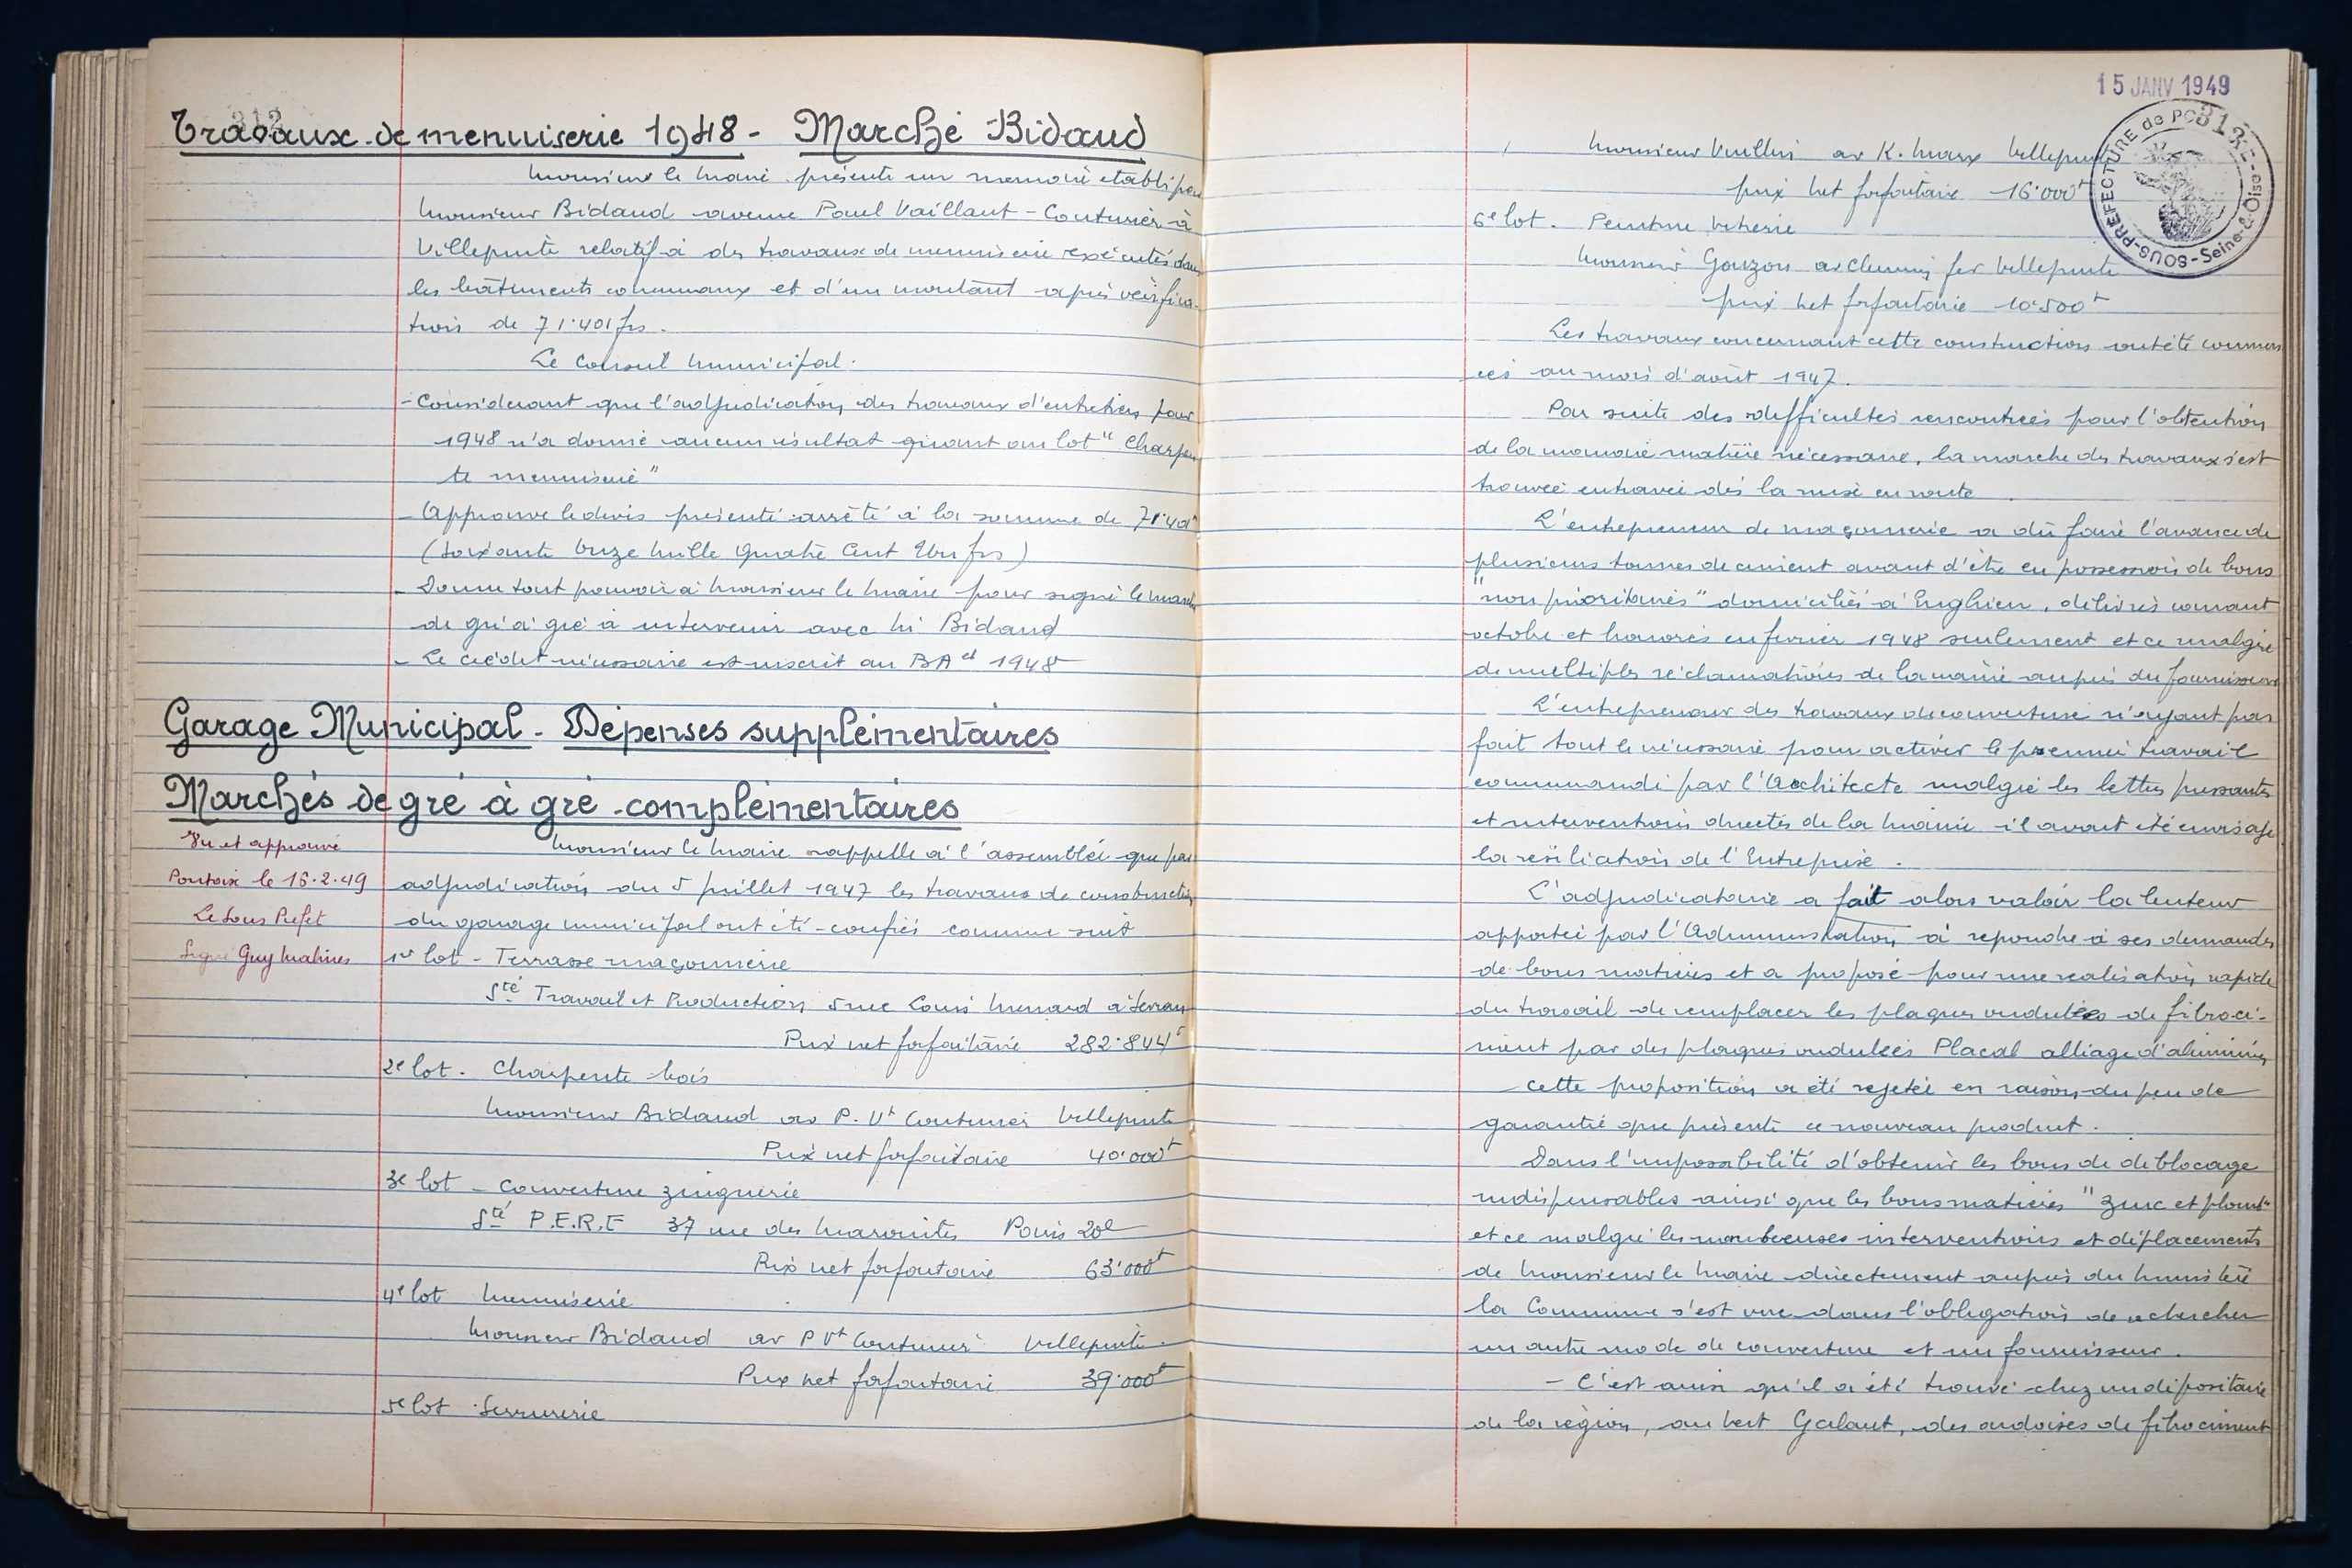 312
Travaux de menuiserie 1948 - Marché Bidaud
Monsieur le Maire présente un memoire etabli par
Monsieur Bidaud avenue Paul Vaillant-Couturier à
Villepinte relatif à des travaux de menuiserie exécutés dans
les bâtiments communaux et d'un montant après vérifica-
tion de 71.401 frs.
Le Conseil Municipal.
- Considerant que l'adjudication des travaux d'entretien pour
1948 n'a donné aucun résultat quant au lot "Charpen
te menuiserie"
- Approuve le devis présenté arrêté à la somme de 71.401
(soixante onze mille quatre cent un frs)
- Donne tout pouvoir à Monsieur le Maire pour signer le marché
de gré à gré à intervenir avec Mr Bidaud
- Le crédit nécessaire est inscrit au BAel 1948
Garage Municipal - Dépenses supplémentaires
Marchés de gré à gré complémentaires
Vu et approuvé
Pontoise le 16.2.49
Le Sous Prefet
Signé Guy
Monsieur le Maire rappelle à l'assemblée que par
adjudication du 5 juillet 1947 les travaux de construction
du garage municipal ont été confiés comme suit
1er lot - Terrasse maçonnerie
Sté Travail et Production 5 rue Louis à Sevran
Prix net forfaitaire 282.844f
2e lot. Charpente bois
Monsieur Bidaud av P. Vt Couturier Villepinte
Prix net forfaitaire 40.000f
3e lot - Couverture zinguerie
Sté P.E.R.E 37 rue des Maronites Paris 20e
Prix net forfaitaire 63.000f
4e lot Menuiserie
Monsieur Bidaud av P Vt Couturier Villepinte.
Prix net forfaitaire 39.000f
5e lot Serrurerie
15 JANV 1949
313
SOUS-PREFECTURE de PONTOISE - Seine-&-Oise
Monsieur av K. Marx Villepinte
prix net forfaitaire 16.000f
6e lot. Peinture vitrerie
Monsieur Gouzon av Chemin fer Villepinte
prix net forfaitaire 10.500f
Les travaux concernant cette construction ont été commen
cés au mois d'août 1947.
Par suite des difficultés rencontrées pour l'obtention
de la monnaie matière nécessaire, la marche des travaux s'est
trouvée entravée dès la mise en route
L'entrepreneur de maçonnerie a dû faire l'avance de
plusieurs tonnes de ciment avant d'être en possession de bons
"non prioritaires" domiciliés à Enghien, délivrés courant
octobre et honorés en fevrier 1948 seulement et ce malgré
de multiples réclamations de la mairie auprès du fournisseur
L'entrepreneur des travaux de couverture n'ayant pas
fait tout le nécessaire pour activer le premier travail
commandé par l'Architecte malgré les lettres pressantes
et interventions directes de la Mairie il avait été envisagé
la résiliation de l'Entreprise.
L'adjudicataire a fait alors valoir la lenteur
apportée par l'Administration à repondre à ses demandes
de bons matières et a proposé pour une realisation rapide
du travail de remplacer les plaques ondulées de fibroci-
ment par des plaques ondulées Placal alliage d'aluminium
cette proposition a été rejetée en raison du peu de
garantie que présente ce nouveau produit.
Dans l'impossibilité d'obtenir les bons de déblocage
indispensables ainsi que les bons matières "zinc et plomb"
et ce malgré les nombreuses interventions et déplacements
de Monsieur le Maire directement auprès du Ministère
la Commune s'est vue dans l'obligation de rechercher
un autre mode de couverture et un fournisseur.
- C'est ainsi qu'il a été trouvé chez un dépositaire
de la région, au Vert Galant, des ardoises de fibrociment